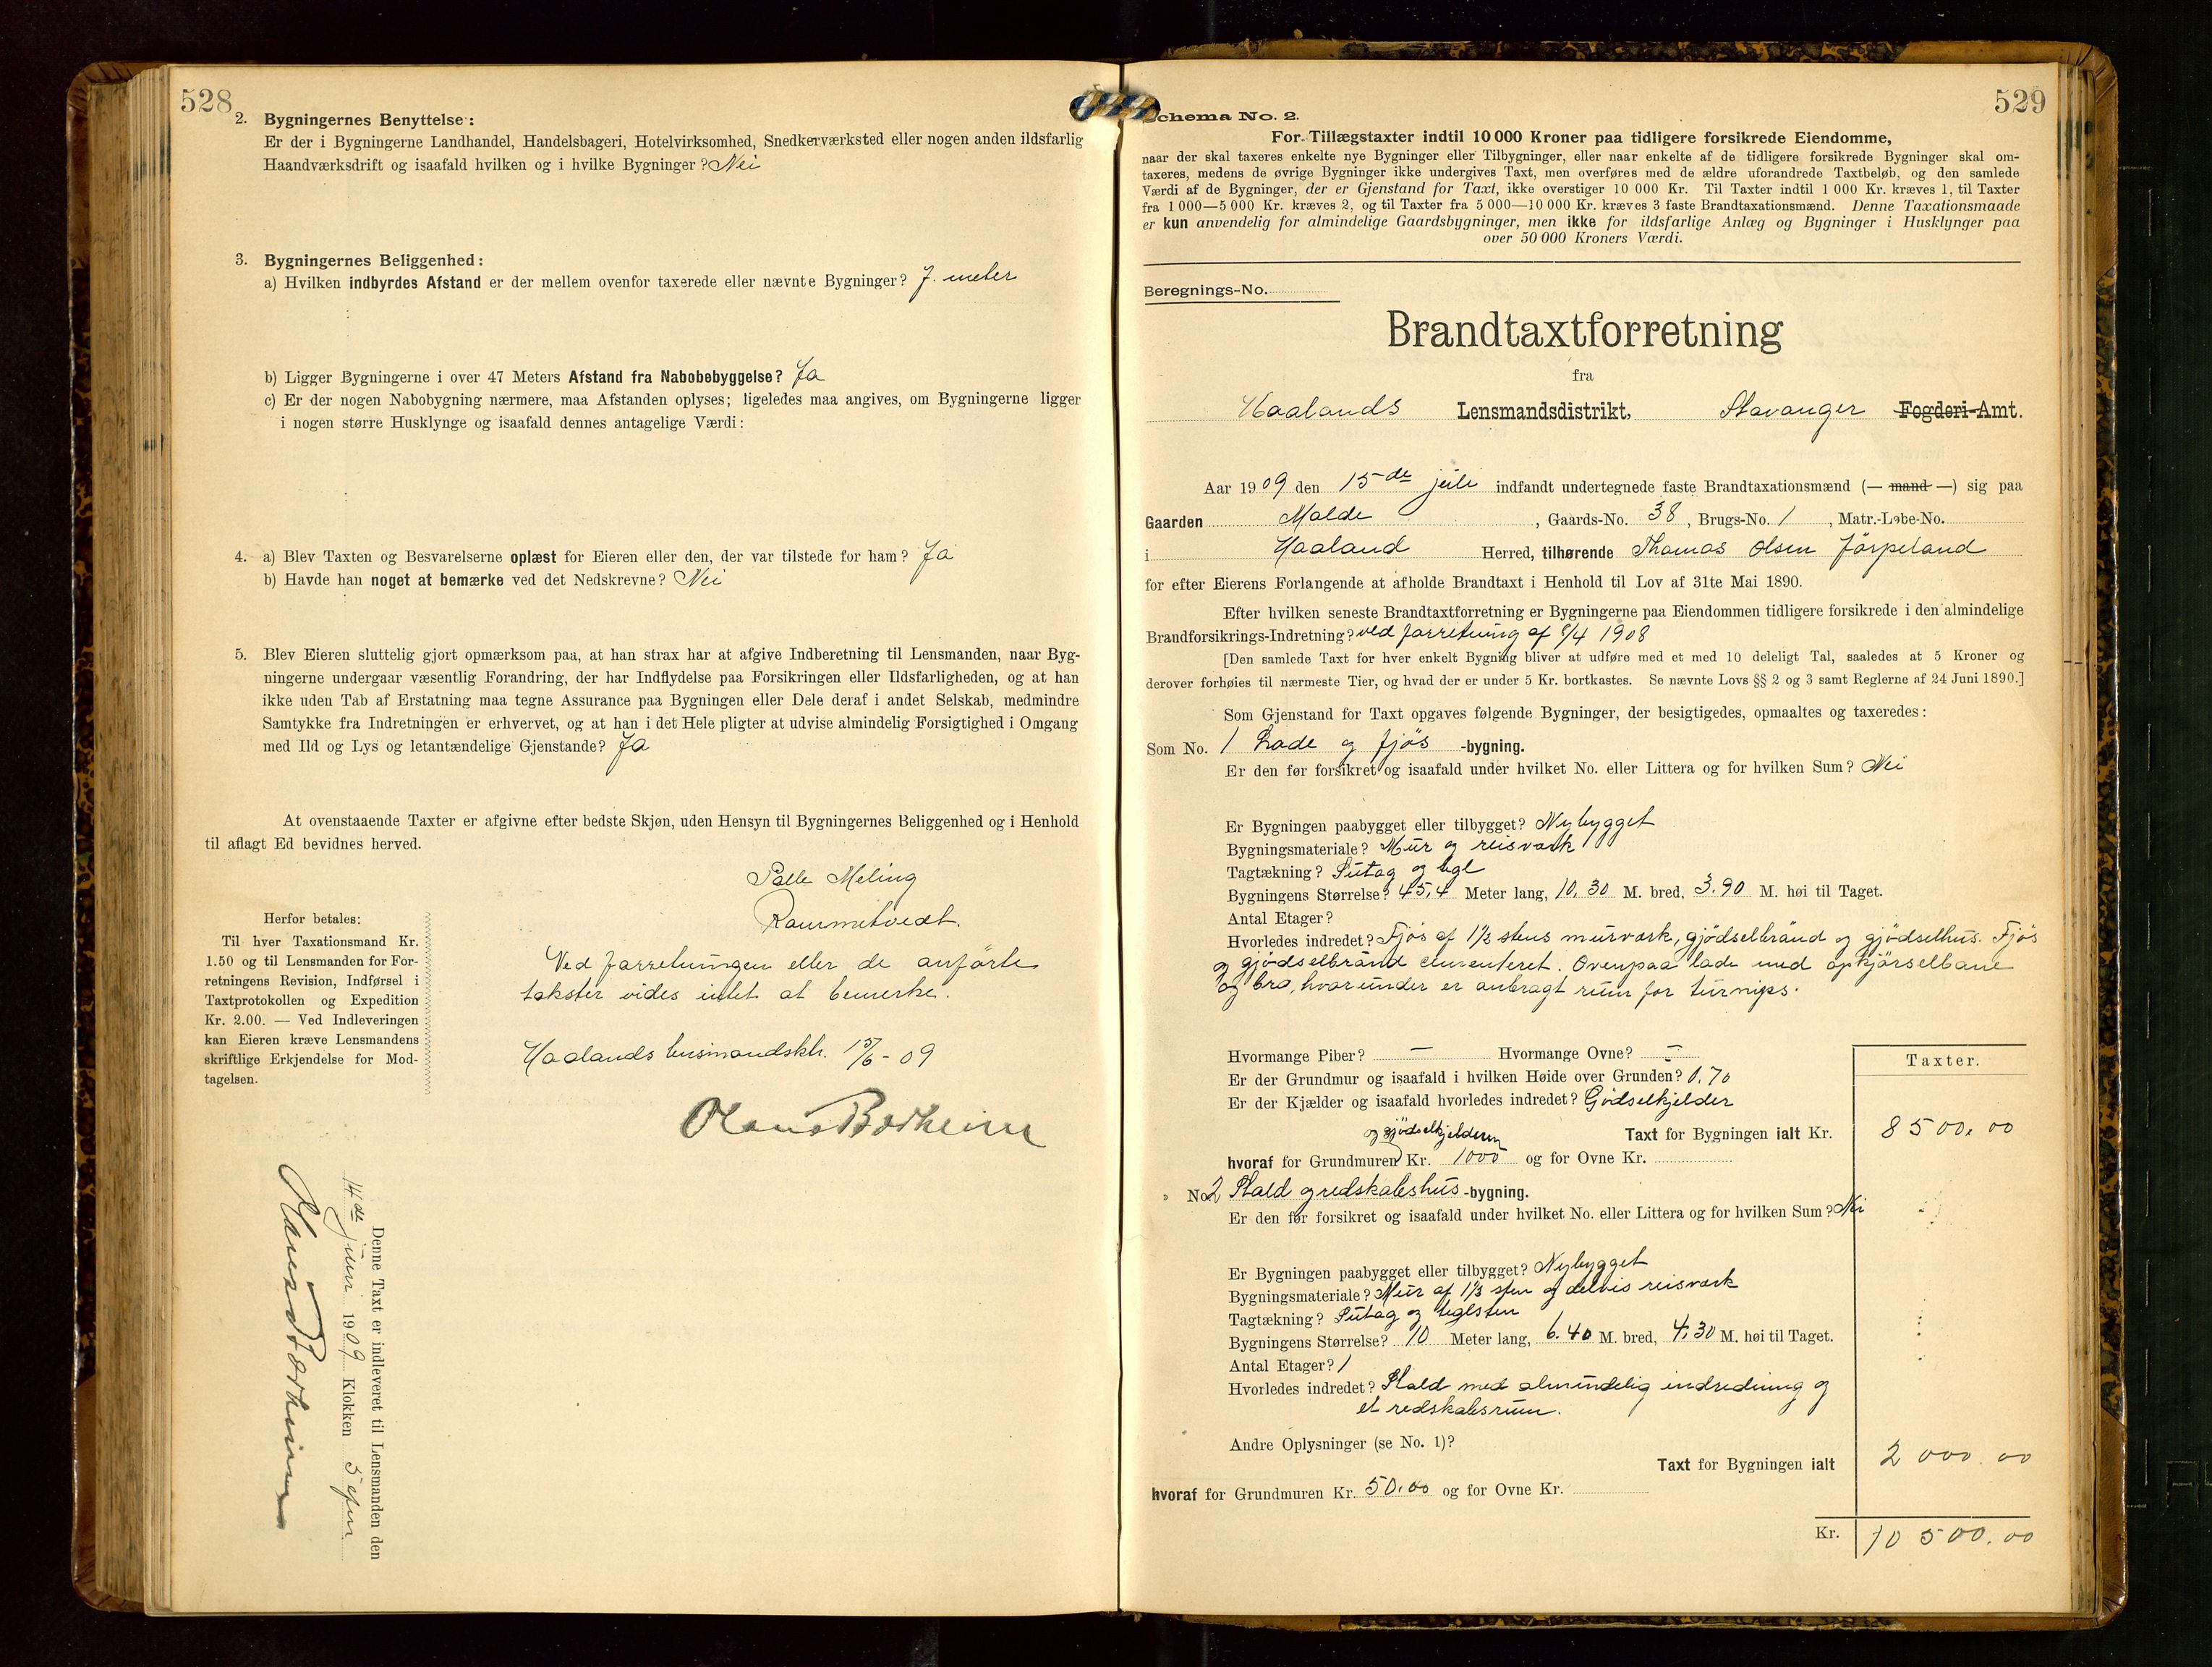 528
2. Bygningernes Benyttelse:
Er der i Bygningerne Landhandel, Handelsbageri, Hotelvirksomhed, Snedkerværksted eller nogen anden ildsfarlig
Haandværksdrift og isaafald hvilken og i hvilke Bygninger? Nei
3. Bygningernes Beliggenhed:
a) Hvilken indbyrdes Afstand er der mellem ovenfor taxerede eller nævnte Bygninger? 7. meter
b) Ligger Bygningerne i over 47 Meters Afstand fra Nabobebyggelse? Ja
c) Er der nogen Nabobygning nærmere, maa Afstanden oplyses; ligeledes maa angives, om Bygningerne ligger
i nogen større Husklynge og isaafald dennes antagelige Værdi:
4. a) Blev Taxten og Besvarelserne oplæst for Eieren eller den, der var tilstede for ham? Ja
b) Havde han noget at bemærke ved det Nedskrevne? Nei
5. Blev Eieren sluttelig gjort opmærksom paa, at han strax har at afgive Indberetning til Lensmanden, naar Byg-
ningerne undergaar væsentlig Forandring, der har Indflydelse paa Forsikringen eller Ildsfarligheden, og at han
ikke uden Tab af Erstatning maa tegne Assurance paa Bygningen eller Dele deraf i andet Selskab, medmindre
Samtykke fra Indretningen er erhvervet, og at han i det Hele pligter at udvise almindelig Forsigtighed i Omgang
med Ild og Lys og letantændelige Gjenstande? Ja
At ovenstaaende Taxter er afgivne efter bedste Skjøn, uden Hensyn til Bygningernes Beliggenhed og i Henhold
til aflagt Ed bevidnes herved.
Palle Meling
Herfor betales:
Til hver Taxationsmand Kr.
1.50 og til Lensmanden for For-
retningens Revision, Indførsel i
Taxtprotokollen og Expedition
Kr. 2.00. — Ved Indleveringen
kan Eieren kræve Lensmandens
skriftlige Erkjendelse for Mod-
tagelsen.
Ved forretningen eller de anförte
takster vides intet at bemerke.
Haalands 15/6-09
Denne Taxt er indleveret til Lensmanden den
14de juni 1909 Klokken 5
529
Schema No. 2.
For Tillægstaxter indtil 10 000 Kroner paa tidligere forsikrede Eiendomme,
naar der skal taxeres enkelte nye Bygninger eller Tilbygninger, eller naar enkelte af de tidligere forsikrede Bygninger skal om-
taxeres, medens de øvrige Bygninger ikke undergives Taxt, men overføres med de ældre uforandrede Taxtbeløb, og den samlede
Værdi af de Bygninger, der er Gjenstand for Taxt, ikke overstiger 10 000 Kr. Til Taxter indtil 1 000 Kr. kræves 1, til Taxter
fra 1 000—5 000 Kr. kræves 2, og til Taxter fra 5 000—10 000 Kr. kræves 3 faste Brandtaxationsmænd. Denne Taxationsmaade
er kun anvendelig for almindelige Gaardsbygninger, men ikke for ildsfarlige Anlæg og Bygninger i Husklynger paa
over 50 000 Kroners Værdi.
Beregnings-No.
Brandtaxtforretning
fra
Haalands Lensmandsdistrikt, Stavanger Fogderi-Amt.
Aar 1909 den 15de juli indfandt undertegnede faste Brandtaxationsmænd (— mand —) sig paa
Gaarden Malde, Gaards-No. 38, Brugs-No. 1, Matr.-Løbe-No.
i Haaland Herred, tilhørende Thomas Olsen Jörpeland
for efter Eierens Forlangende at afholde Brandtaxt i Henhold til Lov af 31te Mai 1890.
Efter hvilken seneste Brandtaxtforretning er Bygningerne paa Eiendommen tidligere forsikrede i den almindelige
Brandforsikrings-Indretning? ved forretning af 8/4 1908
[Den samlede Taxt for hver enkelt Bygning bliver at udføre med et med 10 deleligt Tal, saaledes at 5 Kroner og
derover forhøies til nærmeste Tier, og hvad der er under 5 Kr. bortkastes. Se nævnte Lovs §§ 2 og 3 samt Reglerne af 24 Juni 1890.]
Som Gjenstand for Taxt opgaves følgende Bygninger, der besigtigedes, opmaaltes og taxeredes:
Som No. 1 Lade og fjös -bygning.
Er den før forsikret og isaafald under hvilket No. eller Littera og for hvilken Sum? Nei
Er Bygningen paabygget eller tilbygget? Nybygget
Bygningsmateriale? Mur og reisværk
Tagtækning? Sutag og tegl
Bygningens Størrelse? 45,4 Meter lang, 10,30 M. bred, 3.90 M. høi til Taget.
Antal Etager?
Hvorledes indredet? Fjös af 1½ stens murværk, gjödselbrönd og gjödselhus. Fjös
og gjödselbrönd cementeret. Ovenpaa lade med opkjörselbane
og bro, hvorunder er anbragt rum for turnips.
Hvormange Piber? — Hvormange Ovne? —
Er der Grundmur og isaafald i hvilken Høide over Grunden? 0.70
Er der Kjælder og isaafald hvorledes indredet? Gödselkjelder
Taxter.
Taxt for Bygningen ialt Kr. 8500.00
og gjödselkjelderen
hvoraf for Grundmuren Kr. 1000 og for Ovne Kr.
" No. 2 Stald og redskabshus -bygning.
Er den før forsikret og isaafald under hvilket No. eller Littera og for hvilken Sum? Nei
Er Bygningen paabygget eller tilbygget? Nybygget
Bygningsmateriale? Mur af 1½ sten og delvis reisværk
Tagtækning? Sutag og teglsten
Bygningens Størrelse? 10 Meter lang, 6.40 M. bred, 4.30 M. høi til Taget.
Antal Etager? 1
Hvorledes indredet? Stald med almindelig indredning og
et redskabsrum.
Andre Oplysninger (se No. 1)?
Taxt for Bygningen ialt 2000.00
hvoraf for Grundmuren Kr. 50.00 og for Ovne Kr.
Kr. 10500.00